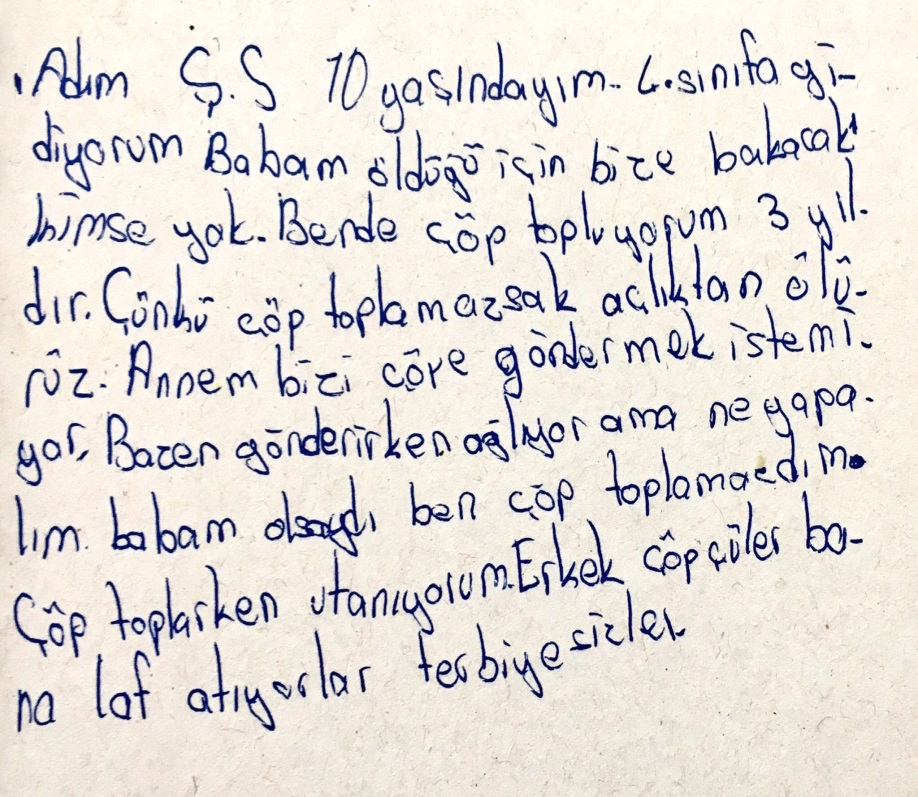 Adım Ş.S 10 yaşındayım. 4.sınıfa gi-
diyorum Babam öldüğü için bize bakacak
kimse yok. Bende çöp topluyorum 3 yıl-
dır. Çünkü çöp toplamazsak açlıktan ölü-
rüz. Annem bizi çöpe göndermek istemi-
yor. Bazen gönderirken ağlıyor ama ne yapa-
lım babam olsaydı ben çöp toplamazdım.
Çöp toplarken utanıyorum.Erkek çöpçüler ba-
na laf atıyorlar terbiyesizler